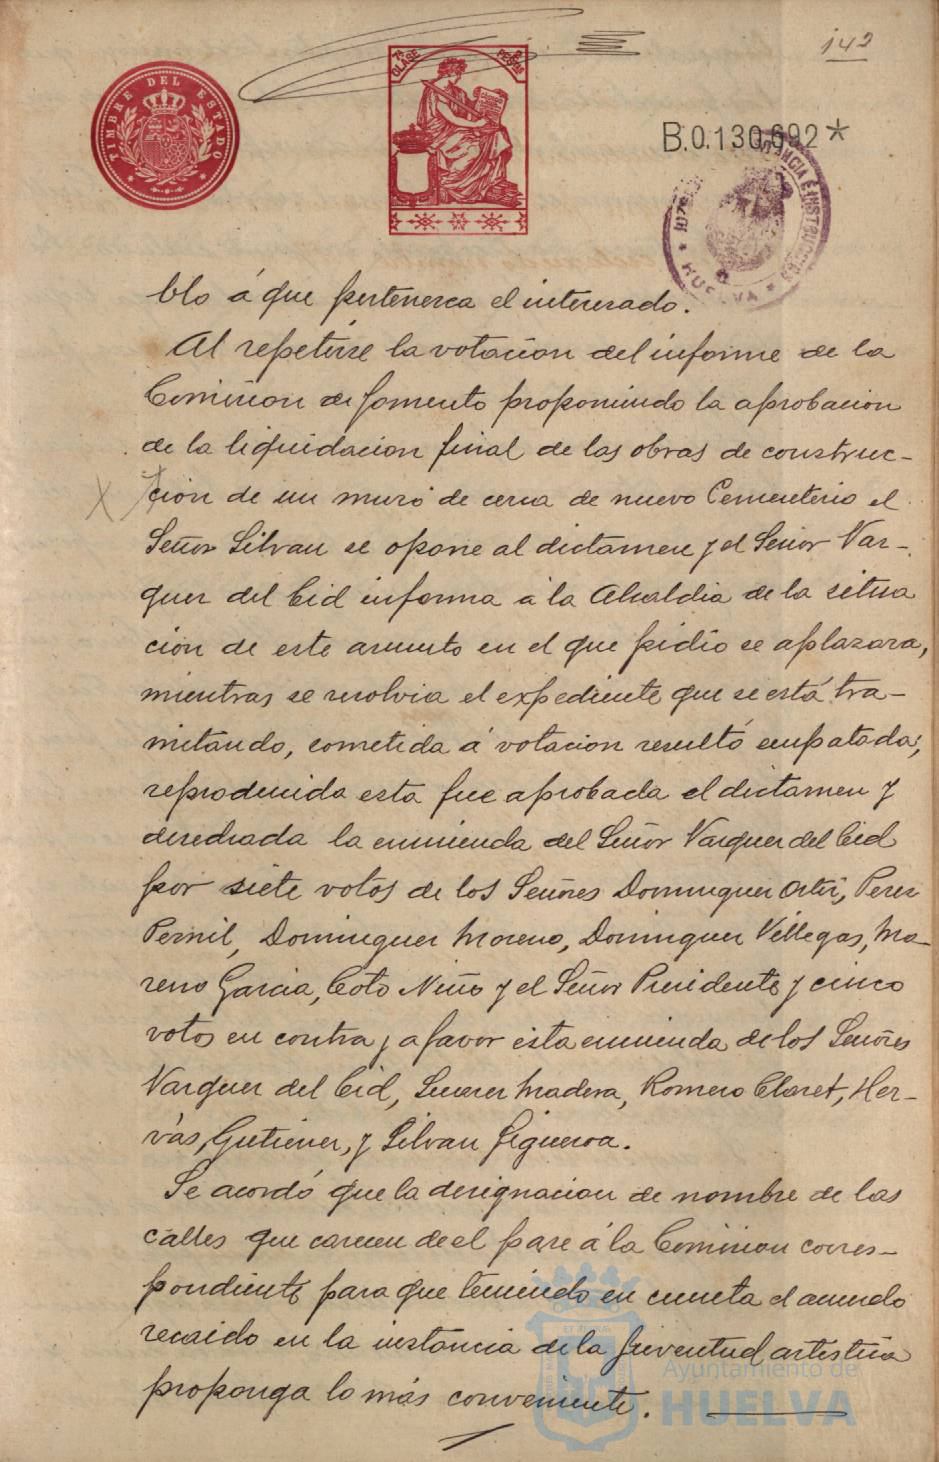 142
TIMBRE DEL ESTADO
7ª CLASE
PESOS
B.0.130.692*
INSTRUCCION
HUELVA
blo á que pertenezca el interesado.
Al repetirse la votacion del informe de la
Comision de fomento proponiendo la aprobacion
de la liquidacion final de las obras de construc-
ción de un muro de cerca de nuevo Cementerio el
Señor Silvan se opone al dictamen y el Señor Vaz-
quez del Cid informa á la Alcaldia de la situa
ción de este asunto en el que pidio se aplazara,
mientras se resolvia el expediente que se está tra-
mitando, cometida á votacion resultó empatada,
reproducida esta fue aprobada el dictamen y
desechada la enmienda del Señor Vazquez del Cid
por siete votos de los Señores Dominguez Ortiz, Perez
Pernil, Dominguez Moreno, Dominguez Villegas, Mo-
reno Garcia, Coto Niño y el Señor Presidente y cinco
votos en contra y a favor esta enmienda de los Señores
Vazquez del Cid, Suarez Madera, Romero Claret, Her-
vás, Gutierrez, y Silvan Figueroa.
Se acordó que la designacion de nombre de las
calles que carecen de el pase á la Comision corres-
pondiente para que teniendo en cuenta el acuerdo
recaido en la instancia de la Juventud artistica
proponga lo más conveniente.
Ayuntamiento de
HUELVA